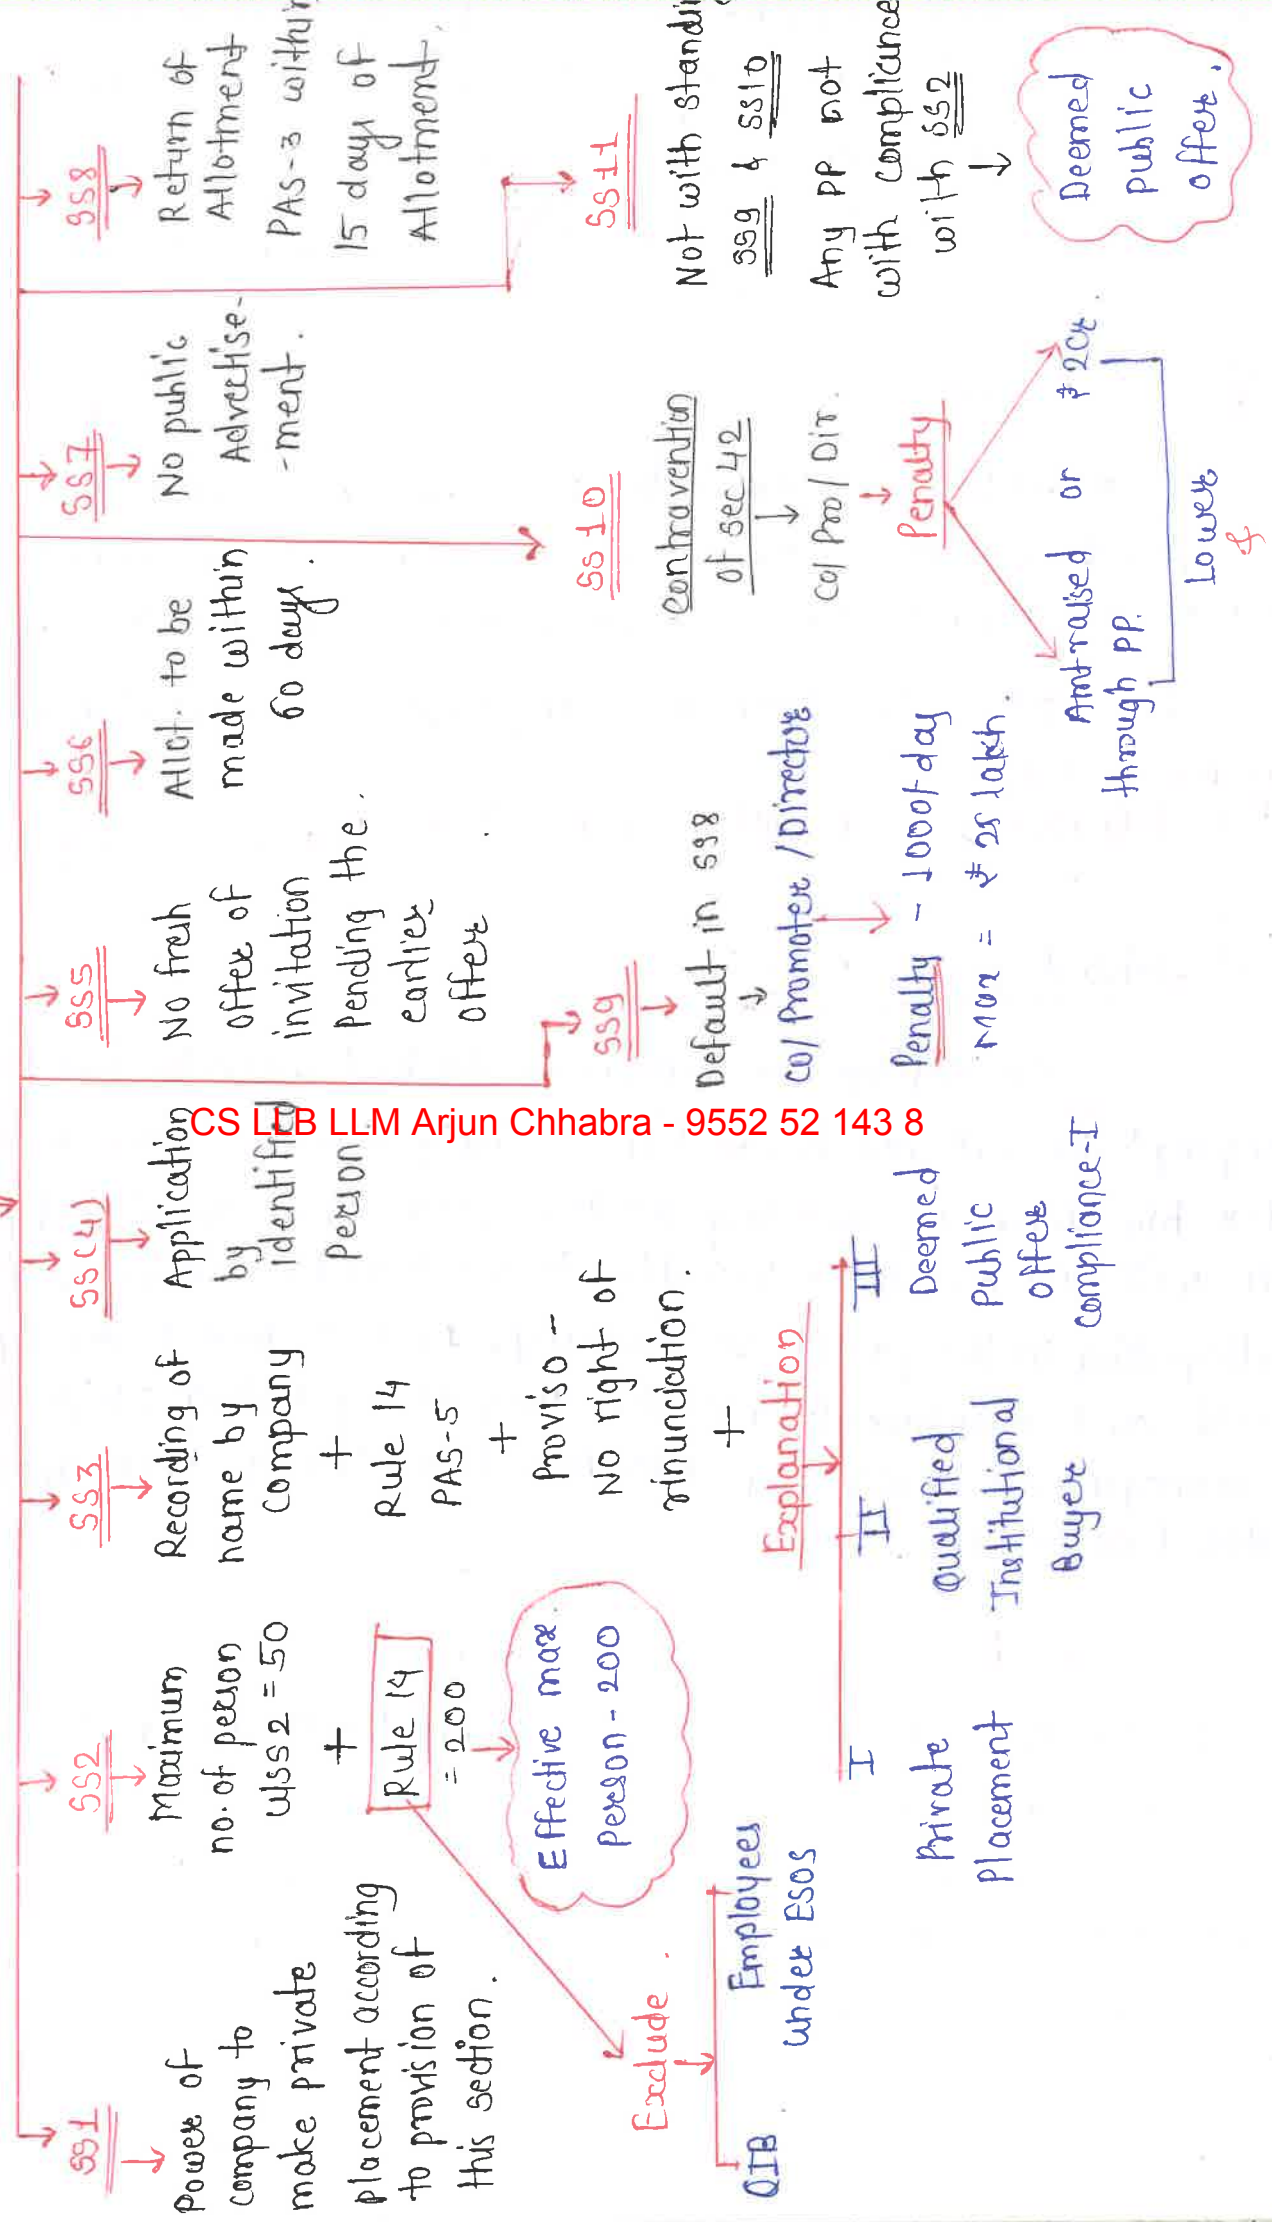 SS1
Power of
company to
make private
placement according
to provision of
this section.
SS2
Maximum
no. of person
u/ss2 = 50
+
Rule 14
= 200
Effective max.
Person - 200
Exclude.
QIB
Employees
under ESOS
SS3
Recording of
name by
company
+
Rule 14
PAS-5
+
Proviso -
No right of
rinunciation.
+
Explanation
I
Private
Placement
II
Qualified
Institutional
Buyer
III
Deemed
Public
offer
Compliance-I
SS(4)
Application
by
identified
Person.
CS LLB LLM Arjun Chhabra - 9552 52 143 8
SS5
No fresh
offer of
invitation
Pending the
earlier
offer.
SS6
Allot. to be
made within
60 days.
SS7
No public
Advertise-
-ment.
SS8
Return of
Allotment
PAS-3 within
15 days of
Allotment.
SS9
Default in SS8
Co/Promoter/Director
Penalty - 1000/-day
Max = ₹ 25 lakh.
SS10
Contravention
of sec 42
Co/Pro/Dir.
Penalty
Amt raised
through PP.
or
₹ 2Cr.
Lower
&
SS11
Not with standi
SS9 & SS10
Any PP not
with complience
with SS2
Deemed
public
offer.